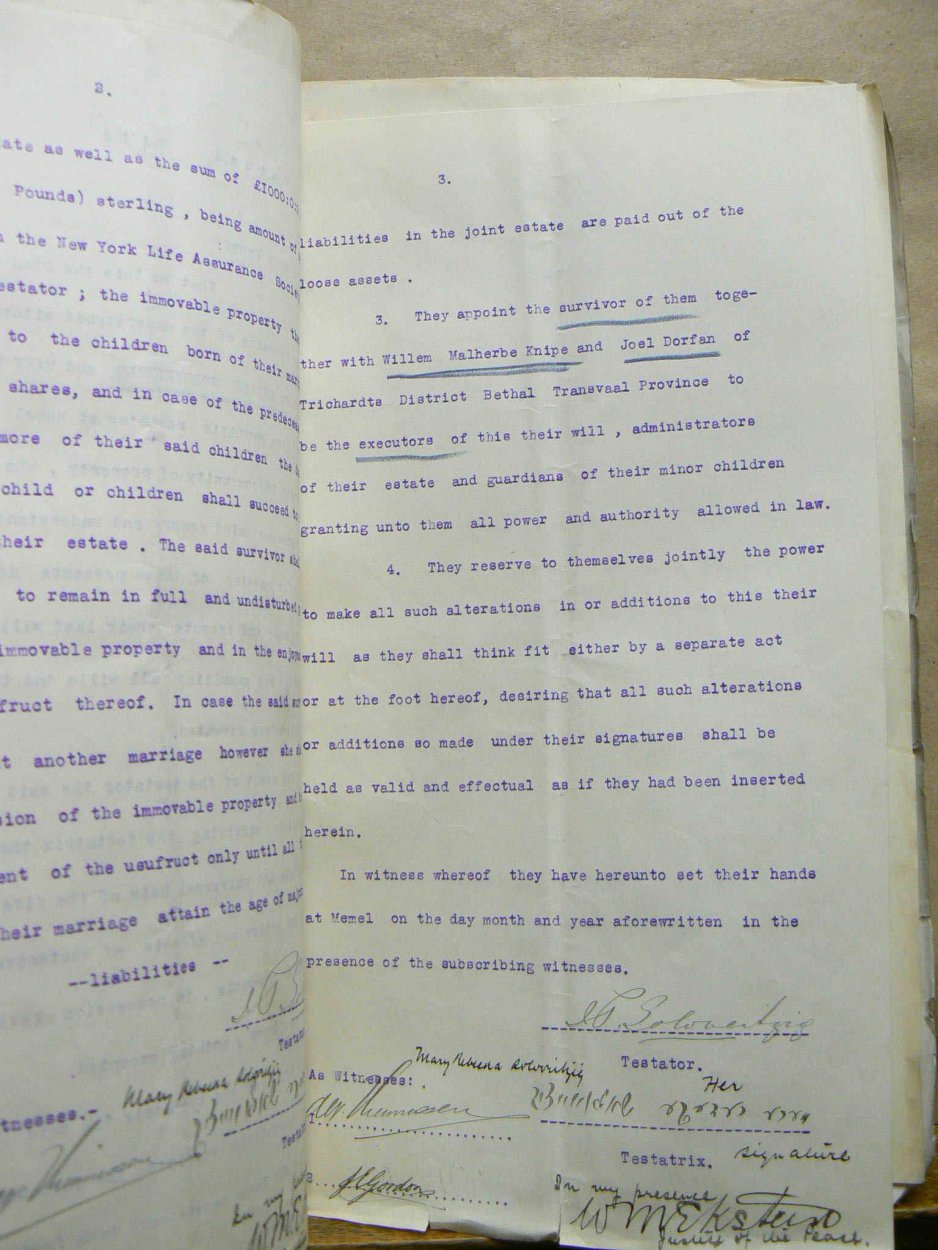 2.
ate as well as the sum of £1000:0:
Pounds) sterling , being amount of
the New York Life Assurance Socie
estator ; the immovable property
to the children born of their
shares, and in case of the predecea
more of their said children the
child or children shall succeed to
their estate . The said survivor
to remain in full and undisturbed
immovable property and in the enjoy
fruct thereof. In case the said
another marriage however she
sion of the immovable property and
ent of the usufruct only until all
heir marriage attain the age of
--liabilities --
Testa
tnesses.-
Mary Rebecca
In my
3.
liabilities in the joint estate are paid out of the
loose assets .
3. They appoint the survivor of them toge-
ther with Willem Malherbe Knipe and Joel Dorfan of
Trichardts District Bethal Transvaal Province to
be the executors of this their will , administrators
of their estate and guardians of their minor children
granting unto them all power and authority allowed in law.
4. They reserve to themselves jointly the power
to make all such alterations in or additions to this their
will as they shall think fit either by a separate act
or at the foot hereof, desiring that all such alterations
or additions so made under their signatures shall be
held as valid and effectual as if they had been inserted
herein.
In witness whereof they have hereunto set their hands
at Memel on the day month and year aforewritten in the
presence of the subscribing witnesses.
Testator.
Mary Rebecca
As Witnesses:
Her
1
Testatrix. signature
2 Gordon
In my presence
Justice of the Peace.